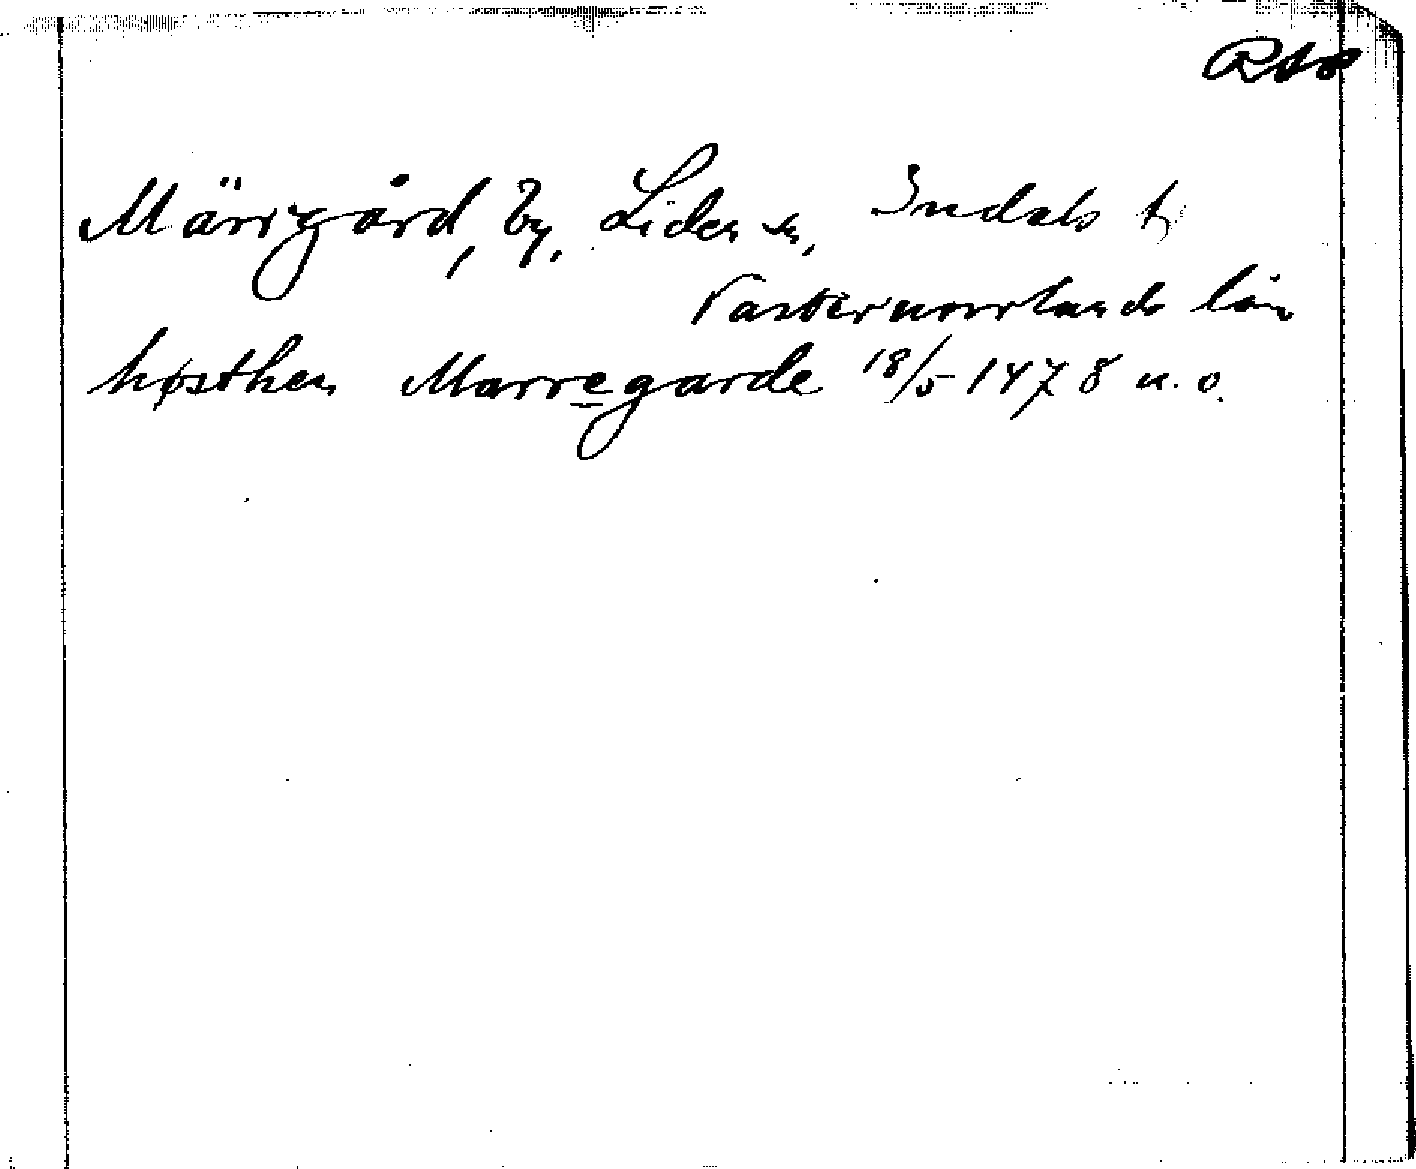 Märrgård, by, Lidens sn, Indals t
Västernorrlands län
høsthen Marregarde 18/5 1478 n. o.